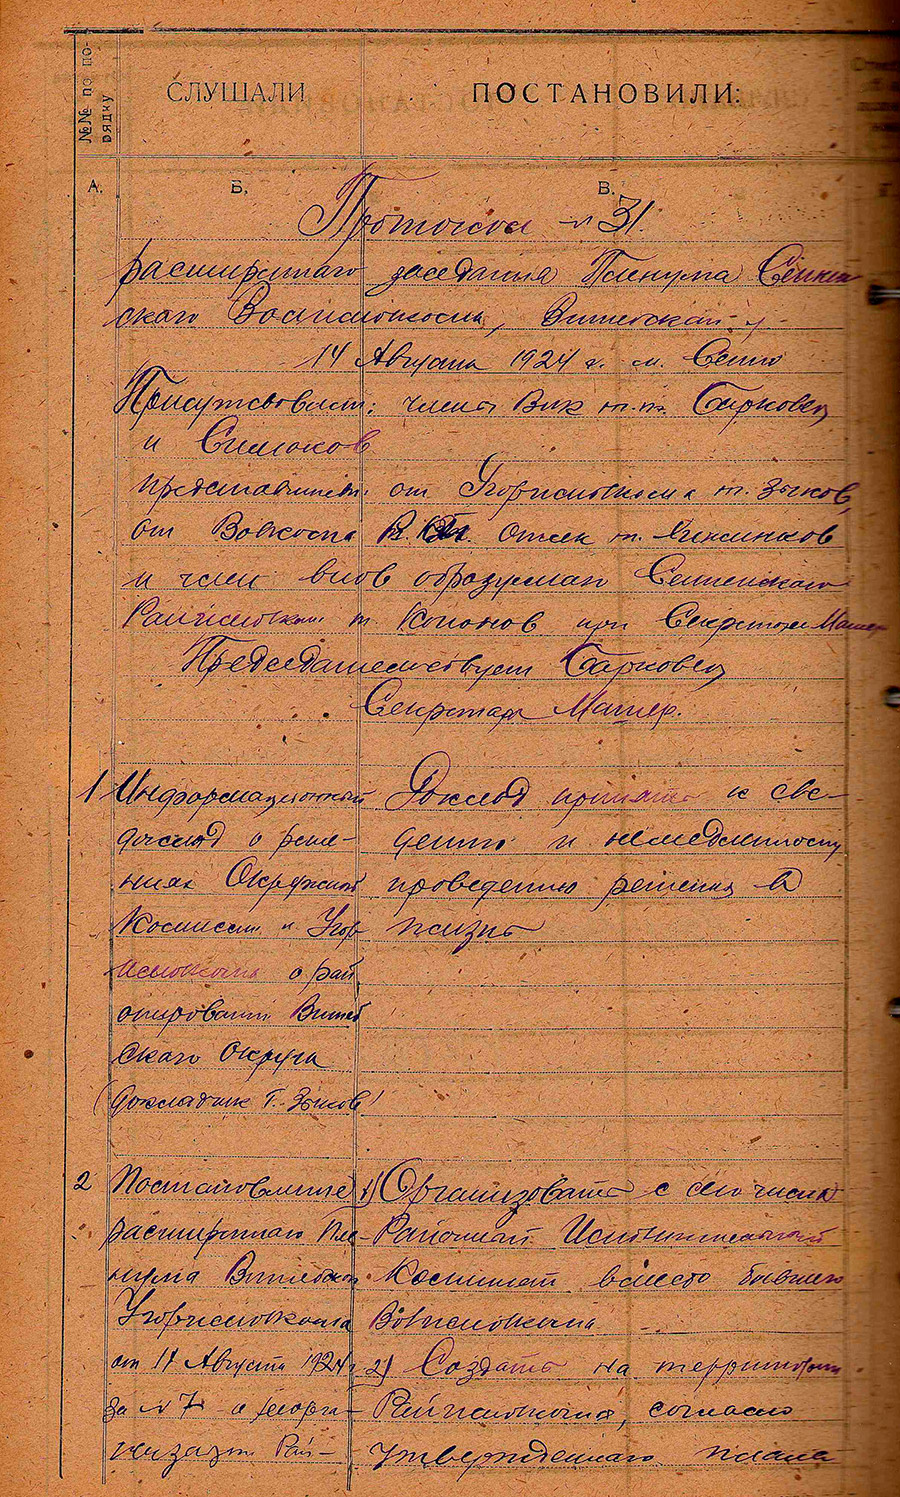 №№ по по-
рядку
СЛУШАЛИ
ПОСТАНОВИЛИ:
А.
Б.
В.
Протокол № 31.
расширенаго заседания Пленума Сеннен
ского Волисполкома, Витебской г.
14 Августа 1924 г. м. Сенно
Присутствовали: члены Вик т.т. Барковец
и Симоков
представители: от Угорисполкома т. Зыков,
от Волкома Р. К. П. Отсек т.
и член вновь образуемаго Сенненского
Райисполкома т. Кононов при Секретаре Матер
Председательствует Барковец
Секретарь Матер.
1 Информационный
доклад о реше-
ниях Окружной
Комиссии и Угор
исполкома о рай
онировании Витеб
ского Округа
(докладчик т. Зыков)
Доклад принять к све-
дению и немедленному
проведению решения в
жизнь
2 Постановление
расширенаго Пле
нума Витебского
Угорисполкома
от 11 Августа 1924 г.
за № 7 о реорга-
низации Рай-
1) Организовать с сего числа
Районный Исполнительный
Комитет вместо бывшего
Волисполкома
2) Создать на территории
Райисполкома, согласно
утвержденнаго плана